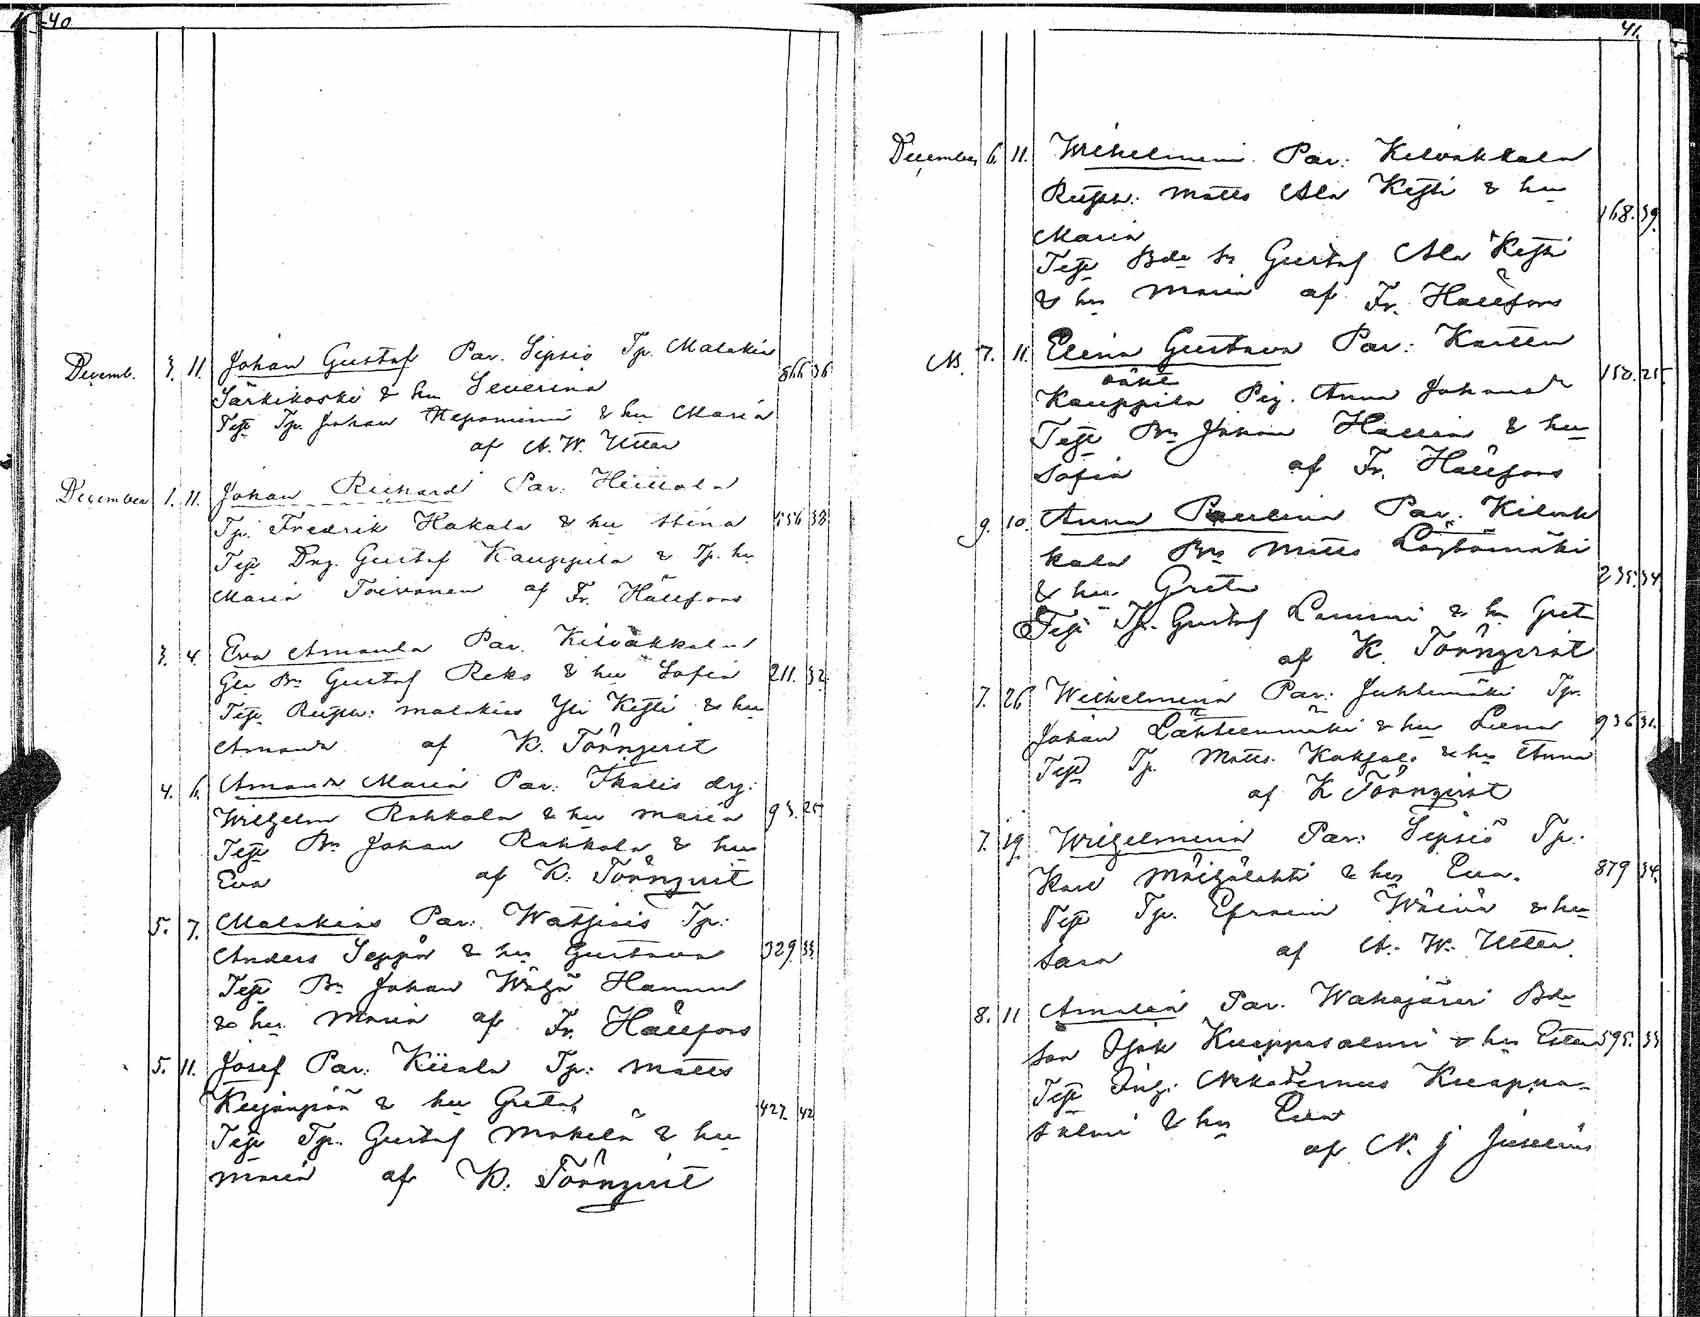 40
Decemb. 3. 11. Johan Gustaf Par. Sipsiö Tp. Malakias 866 36
Särkikoski & hu Severina
Test Tp. Johan Neponimi & hu Maria
af A. W. Utter
December 1. 11. Johan Richard Par: Heittola
Tp. Fredrik Hakala & hu Stina 556 38
Test Drg. Gustaf Kauppila & Tp. hu
Maria Toivonen af Fr. Hällfors
3. 4. Eva Amanda Par. Kilvakkala
Bn Gustaf Reko & hu Sofia 211. 32
Test Rustn: Malakias Yli Kesti & hu
Amanda af K. Törnqvist
4. 6. Amanda Maria Par: Ikalis drg:
Wilhelm Rahkola & hu Maria 93. 25
Test Bn Johan Rahkola & hu
Eva af K. Törnqvist
5. 7. Malakias Par: Watsiais Tp:
Anders Seppä & hu Gustava 329. 33
Test Bn Johan Hannu
& hu Maria af Fr. Hällfors
5. 11. Josef Par: Kiiala Tp: Matts
Kujanpää & hu Greta 427. 42
Test Tp. Gustaf Mäkelä & hu
Maria af K. Törnqvist
41.
December 6. 11. Wilhelmina Par: Kilvakkala
Rustn: Matts Ala Kesti & hu 168. 39.
Maria
Test Bde Sn Gustaf Ala Kesti
& hu Maria af Fr. Hällfors
N. 7. 11. Elina Gustava Par: Kartton
oäkt 158. 25
Kauppila Pig. Anna Johansdr
Test Bn Johan & hu
Sofia af Fr. Hällfors
9. 10. Anna Paulina Par. Kilvak
kala Bn Matts
& hu Greta 235. 34
Test Tp. Gustaf Lammi & hu Greta
af K. Törnqvist
7. 26 Wilhelmina Par: Juhtimäki Tp.
Johan Lähteenmäki & hu Liena 936 31.
Test Tp. Matts & hu Anna
af K Törnqvist
7. 19. Wilhelmina Par: Sipsiö Tp:
Karl & hu Eva. 879 34.
Test Tp. Efraim Wäinä & hu
Sara af A. W. Utter.
8. 11 Amalia Par. Wahojärvi Bde
Son Isak Kuappasalmi & hu Ester 595. 33
Test Ing: Nikodemus Kuappa-
salmi & hu Eva
af N. J Juselius